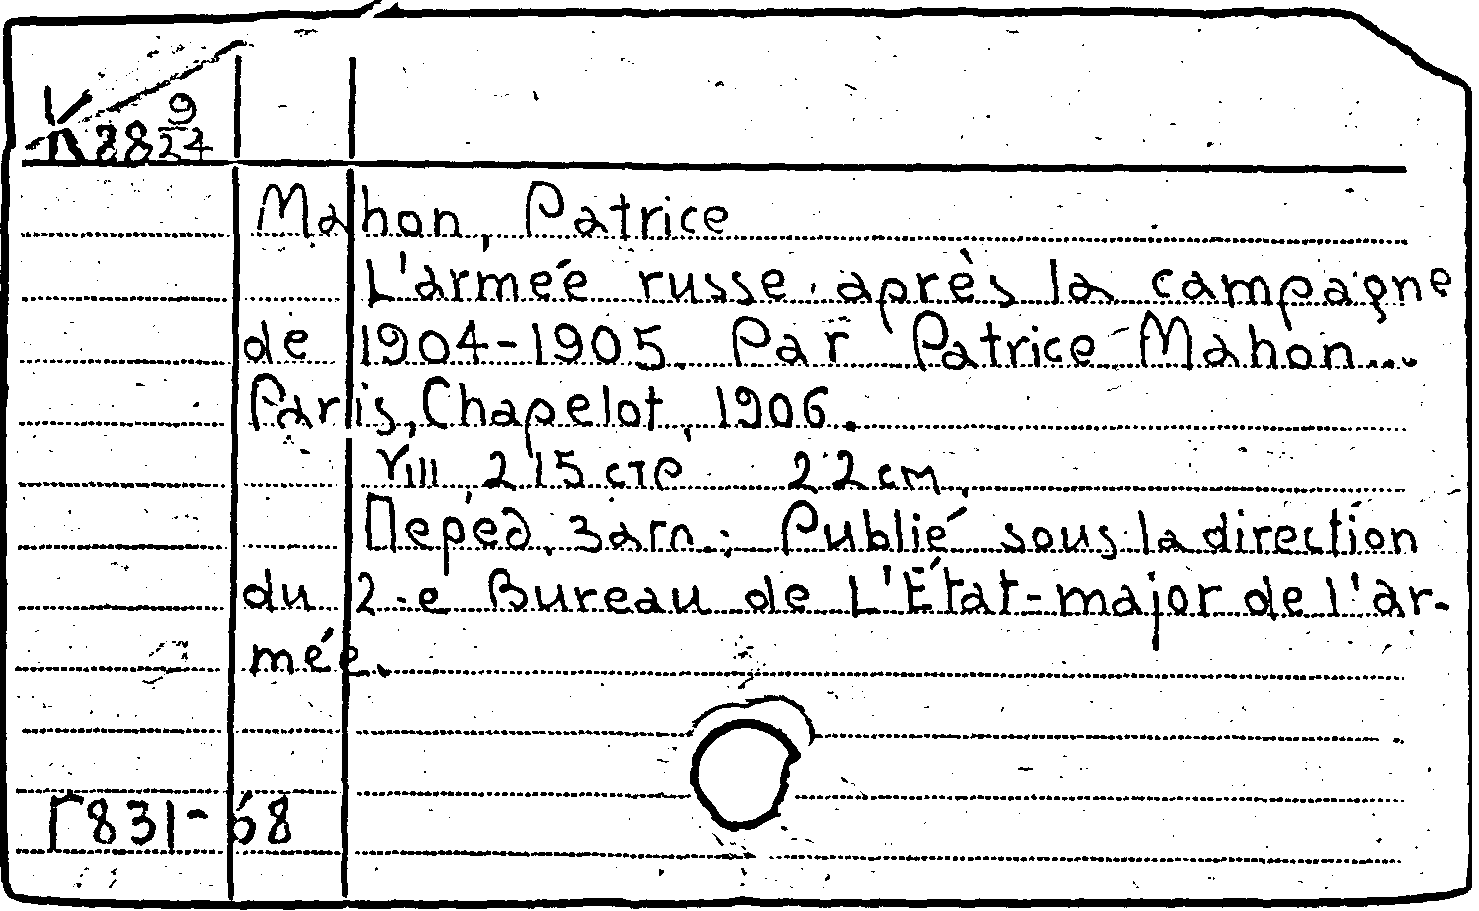 К 88 9/24
Mahon, Patrice
L'armée russe après la campagne
de 1904-1905. Par Patrice Mahon...
Paris, Chapelot, 1906.
VIII, 215 стр. 22 см.
Перед загл.: Publié sous la direction
du 2-e Bureau de L'État-major de l'ar-
mée.
Г831-68